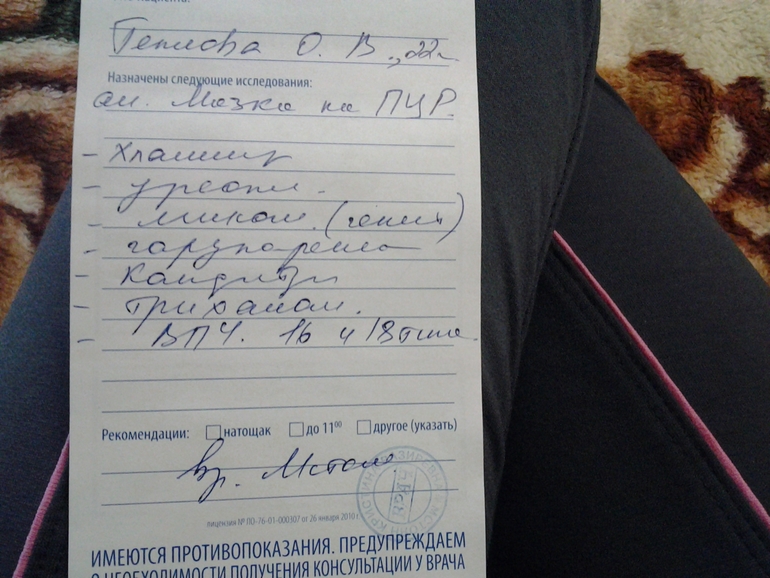 Теплова О. В., 22г
Назначены следующие исследования:
ан. Мазка на ПЦР.
- хламид
- уреапл.
- микопл. (генит)
- гарднерелла
- кандиды
- трихомон.
- ВПЧ. 16 и 18 типа.
Рекомендации: натощак до 11⁰⁰ другое (указать)
вр.
лицензия № ЛО-76-01-000307 от 26 января 2010 г
ИМЕЮТСЯ ПРОТИВОПОКАЗАНИЯ. ПРЕДУПРЕЖДАЕМ
О НЕОБХОДИМОСТИ ПОЛУЧЕНИЯ КОНСУЛЬТАЦИИ У ВРАЧА